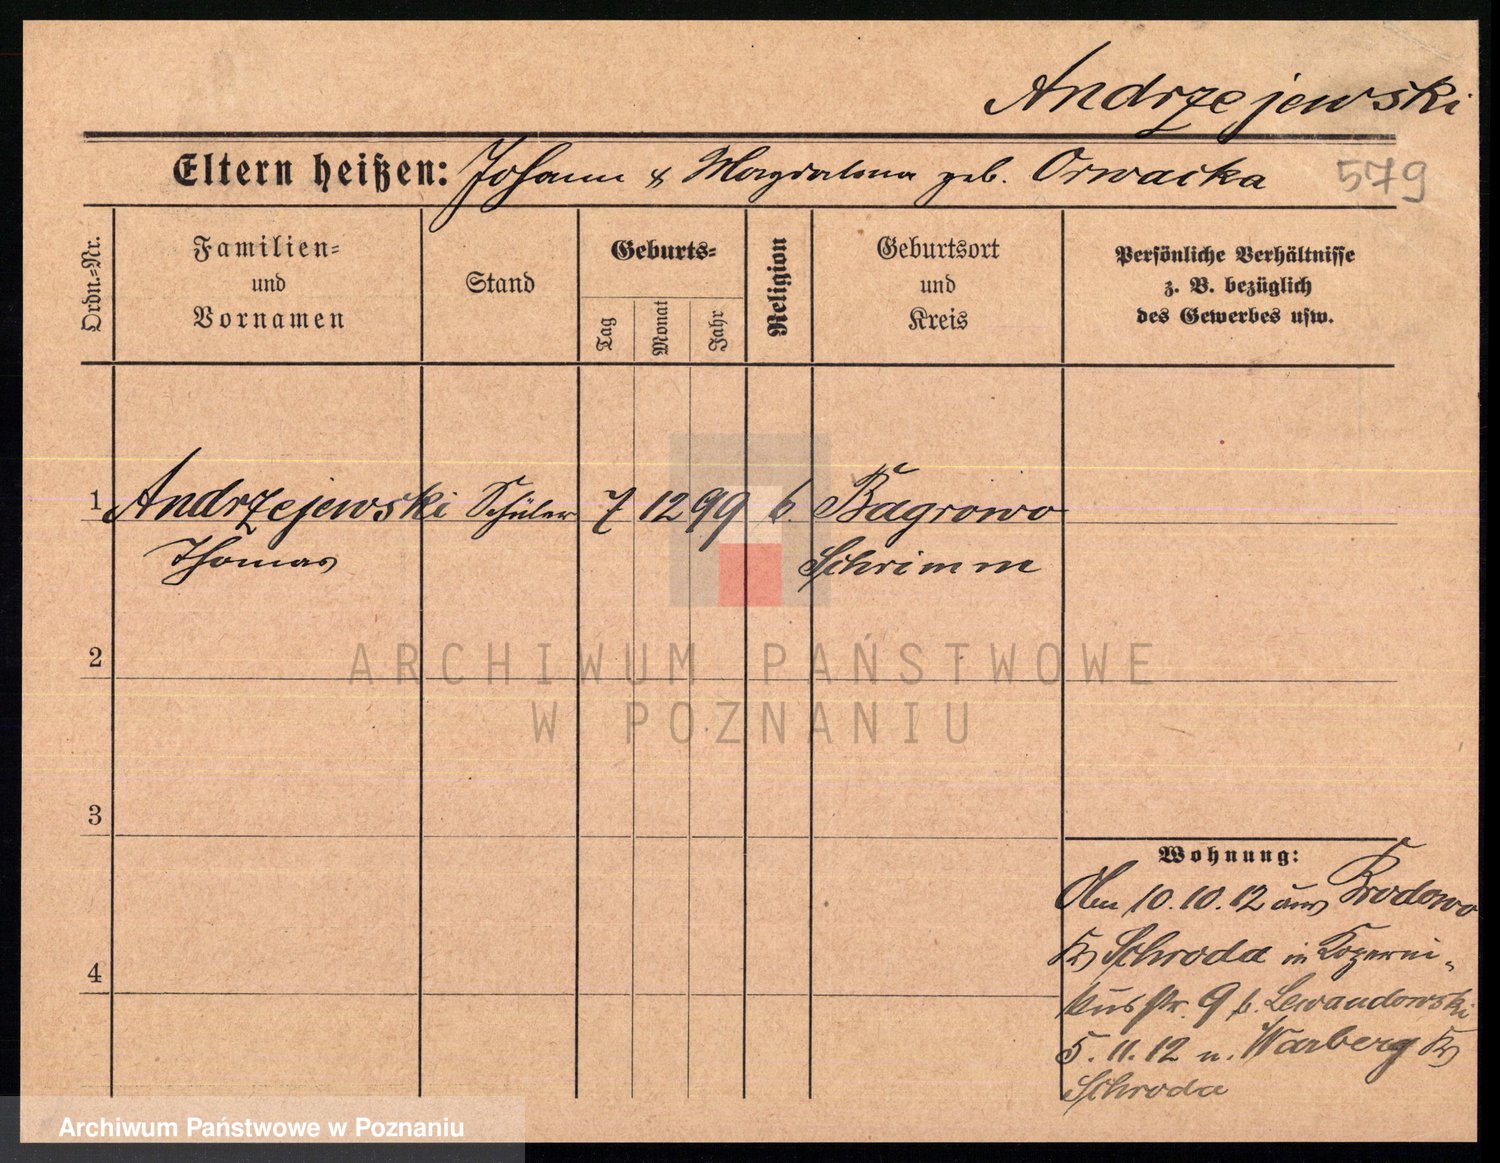 Andrzejewski
Eltern heißen: Johann & Magdalena geb. Orwacka
579
Ordn.=Nr.
Familien=
und
Vornamen
Stand
Geburts=
Tag
Monat
Jahr
Religion
Geburtsort
und
Kreis
Persönliche Verhältnisse
z. B. bezüglich
des Gewerbes usw.
1 Andrzejewski Schüler 7 12 99 k. Bagrowo
Thomas Schrimm
2
3
4
Wohnung:
Am 10.10.12 aus Brodowo
Kr Schroda in Koperni-
kusstr. 9 b. Lewandowski
5.11.12 n. Warberg Kr
Schroda
ARCHIWUM PAŃSTWOWE
W POZNANIU
Archiwum Państwowe w Poznaniu